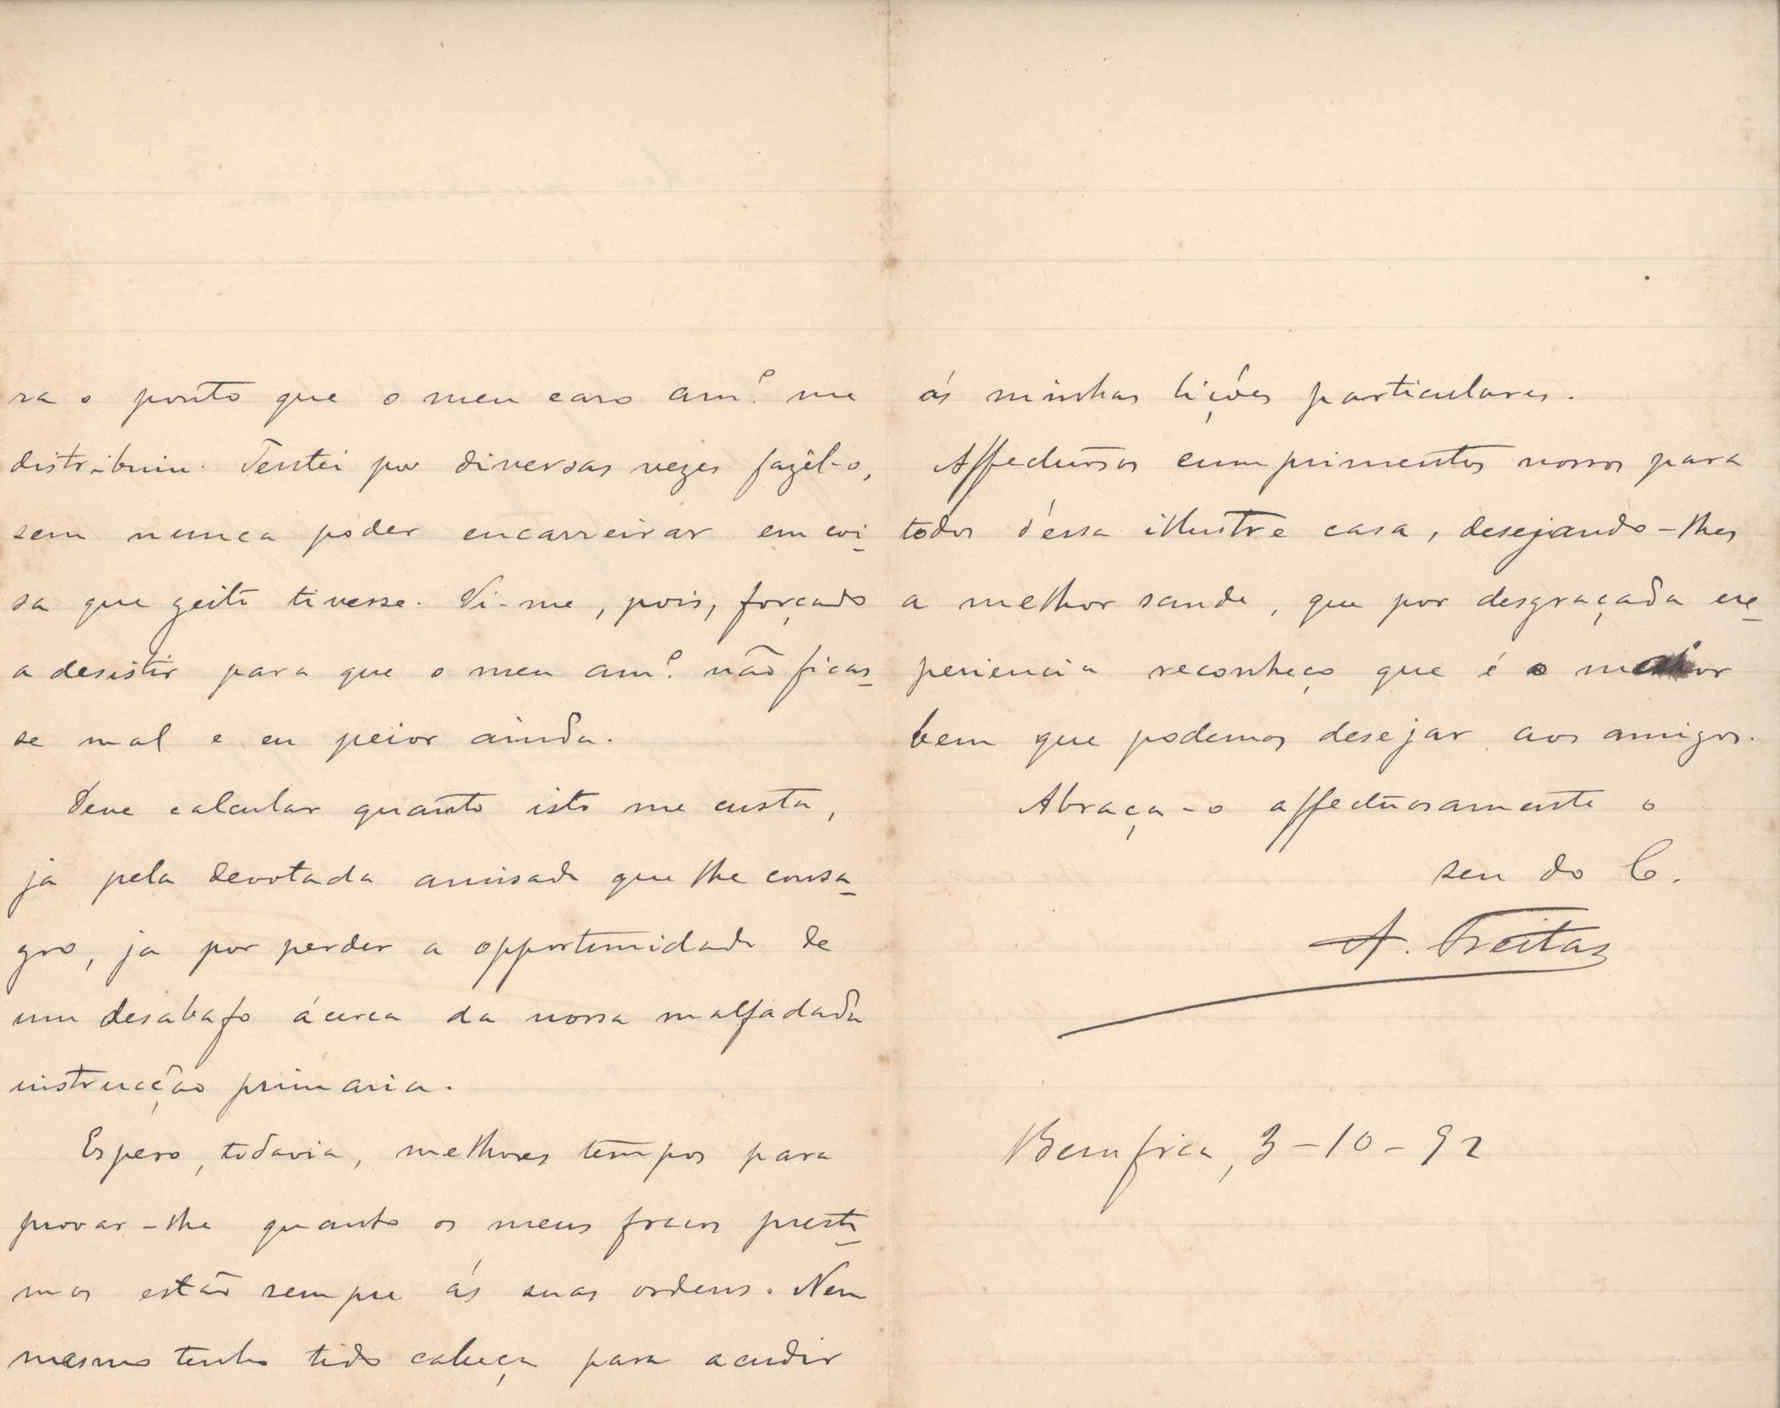 ra o ponto que o meu caro am.º me
distribuiu. Tentei por diversas vezes fazêl-o,
sem nunca poder encarreirar em coi-
sa que geito tivesse. Vi-me, pois, forçado
a desistir para que o meu am.º não ficas-
se mal e eu peior ainda.
Deve calcular quanto isto me custa,
já pela devotada amisade que lhe consa-
gro, já por perder a opportunidade de
um desabafo ácerca da nossa malfadada
instrucção primaria.
Espero, todavia, melhores tempos para
provar-lhe quanto os meus fracos presti-
mos estão sempre ás suas ordens. Nem
mesmo tenho tido cabeça para acudir
ás minhas lições particulares.
Affectuosos cumprimentos nossos para
todos d'essa illustre casa, desejando-lhes
a melhor saude, que por desgraçada ex-
periencia reconheço que é o melhor
bem que podemos desejar aos amigos.
Abraça-o affectuosamente o
seu do C.
A. Freitas
Bemfica, 3-10-92